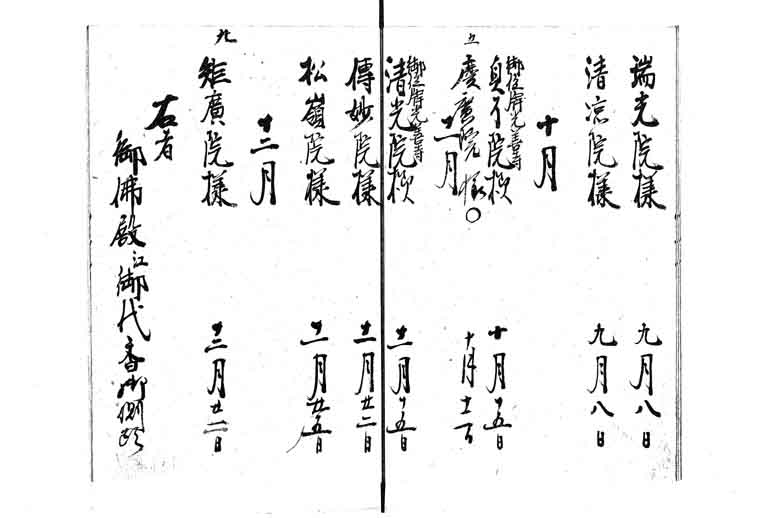 瑞光院様 九月八日
清凉院様 九月八日
十月
御位牌光善寺
貞了院様 十月十五日
五
慶廣院様○ 十月十一日
十一月
御位牌光善寺
清光院様 十一月十五日
傳妙院様 十一月廿二日
松嶺院様 十一月廿五日
十二月
九
矩廣院様 十二月廿二日
右者
御佛殿江御代香御側頭